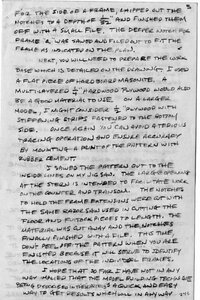 FOR THE SIDE OF A FRAME, CHIPPED OUT THE
NOTCHES TO A DEPTH OF AND FINISHED THEM
OFF WITH A SMALL FILE. THE DEEPER NOTCH FOR
FRAME WAS SAWED AND FILED OUT TO FIT THE
FRAME AS INDICATED ON THE PLAN.
NEXT, YOU WILL NEED TO PREPARE THE WORK
BASE WHICH IS DETAILED ON THE DRAWING. I USED
A FLAT PIECE OF HARD BOARD MASONITE. A
MULTILAYERED 1/4" HARDWOOD PLYWOOD WOULD ALSO
BE A GOOD MATERIAL TO USE. ON A LARGER
MODEL, I MIGHT CONSIDER PLYWOOD WITH
STIFFENING STRIPS FASTENED TO THE BOTTOM
SIDE. ONCE AGAIN YOU CAN AVOID A TEDIOUS
TRACING OPERATION AND ENSURE ACCURACY
BY MOUNTING A PRINT OF THE PATTERN WITH
RUBBER CEMENT.
I SAWED THE PATTERN OUT TO THE
INSIDE LINES ON MY JIG SAW. THE LARGE OPENING
AT THE STERN IS INTENDED TO FACILITATE WORK
ON THE COUNTER AND TRANSOM. THE NOTCHES
TO HOLD THE FRAME EXTENSIONS WERE CUT WITH
THE SAME HAND SAW USED IN CUTTING THE
FLOOR AND FUTTOCK PIECES TO LENGTH. THE
MATERIAL WAS CUT AWAY AND THE NOTCHES
FINALLY FINISHED WITH A FILE. THIS TIME,
DON'T PEEL OFF THE PATTERN WHEN YOU ARE
FINISHED BECAUSE IT WILL SERVE TO IDENTIFY
THE LOCATIONS OF THE INDIVIDUAL FRAMES.
I HOPE THAT SO FAR I HAVE NOT IN ANY
WAY IMPLIED THAT THE MODEL BUILDING TECHNIQUE
BEING DISCUSSED IS A QUICK AND EASY
WAY TO GET RESULTS WHICH ONE IN ANY